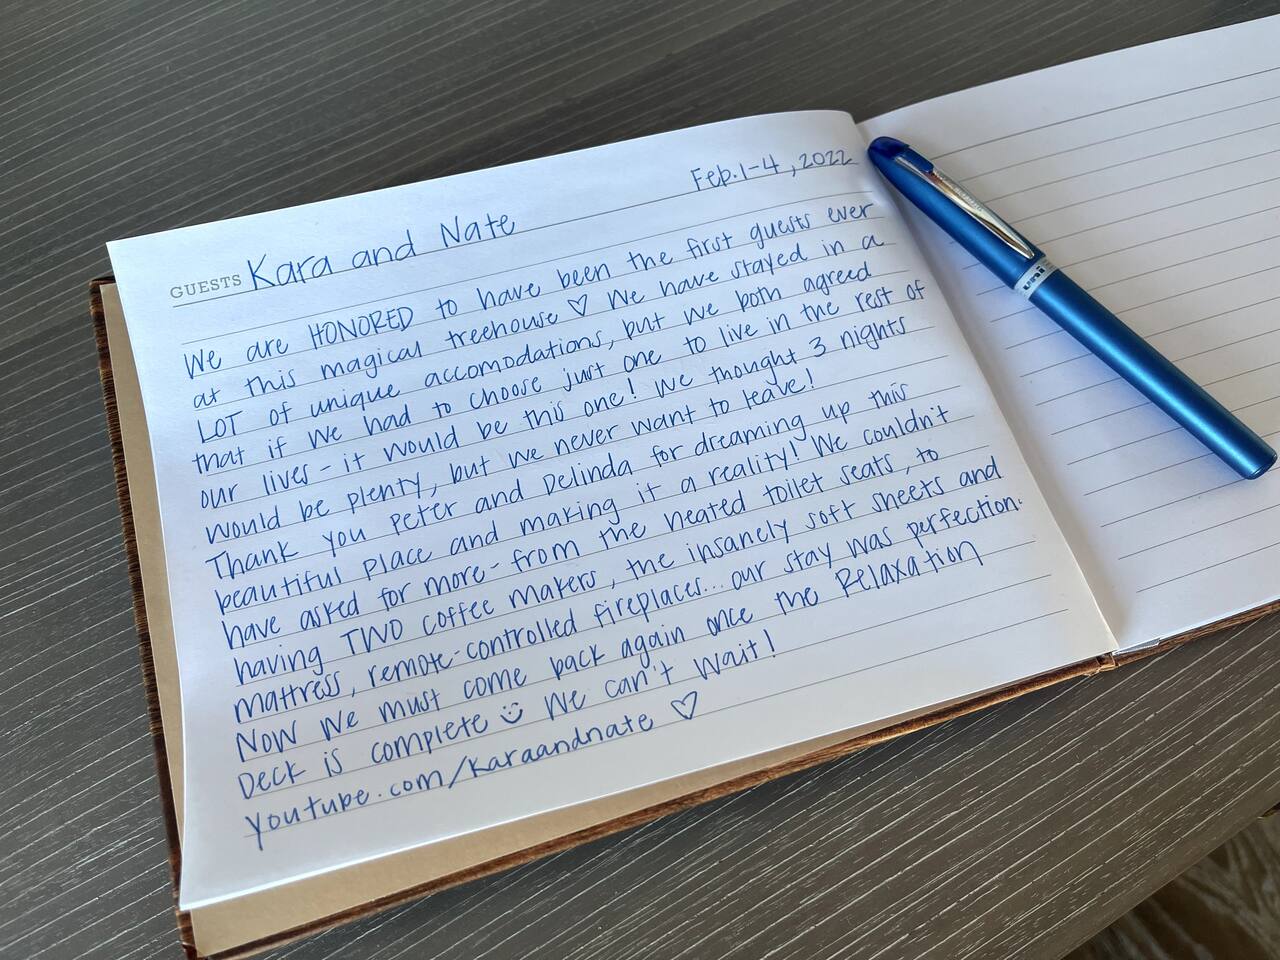 Feb. 1-4, 2022
GUESTS Kara and Nate
We are HONORED to have been the first guests ever
at this magical treehouse ♡ We have stayed in a
LOT of unique accomodations, but we both agreed
that if we had to choose just one to live in the rest of
our lives - it would be this one! We thought 3 nights
would be plenty, but we never want to leave!
Thank you Peter and Delinda for dreaming up this
beautiful place and making it a reality! We couldn't
have asked for more - from the heated toilet seats, to
having TWO coffee makers, the insanely soft sheets and
mattress, remote-controlled fireplaces... our stay was perfection.
Now we must come back again once the Relaxation
Deck is complete ☺ We can't wait!
youtube.com/karaandnate ♡
uni